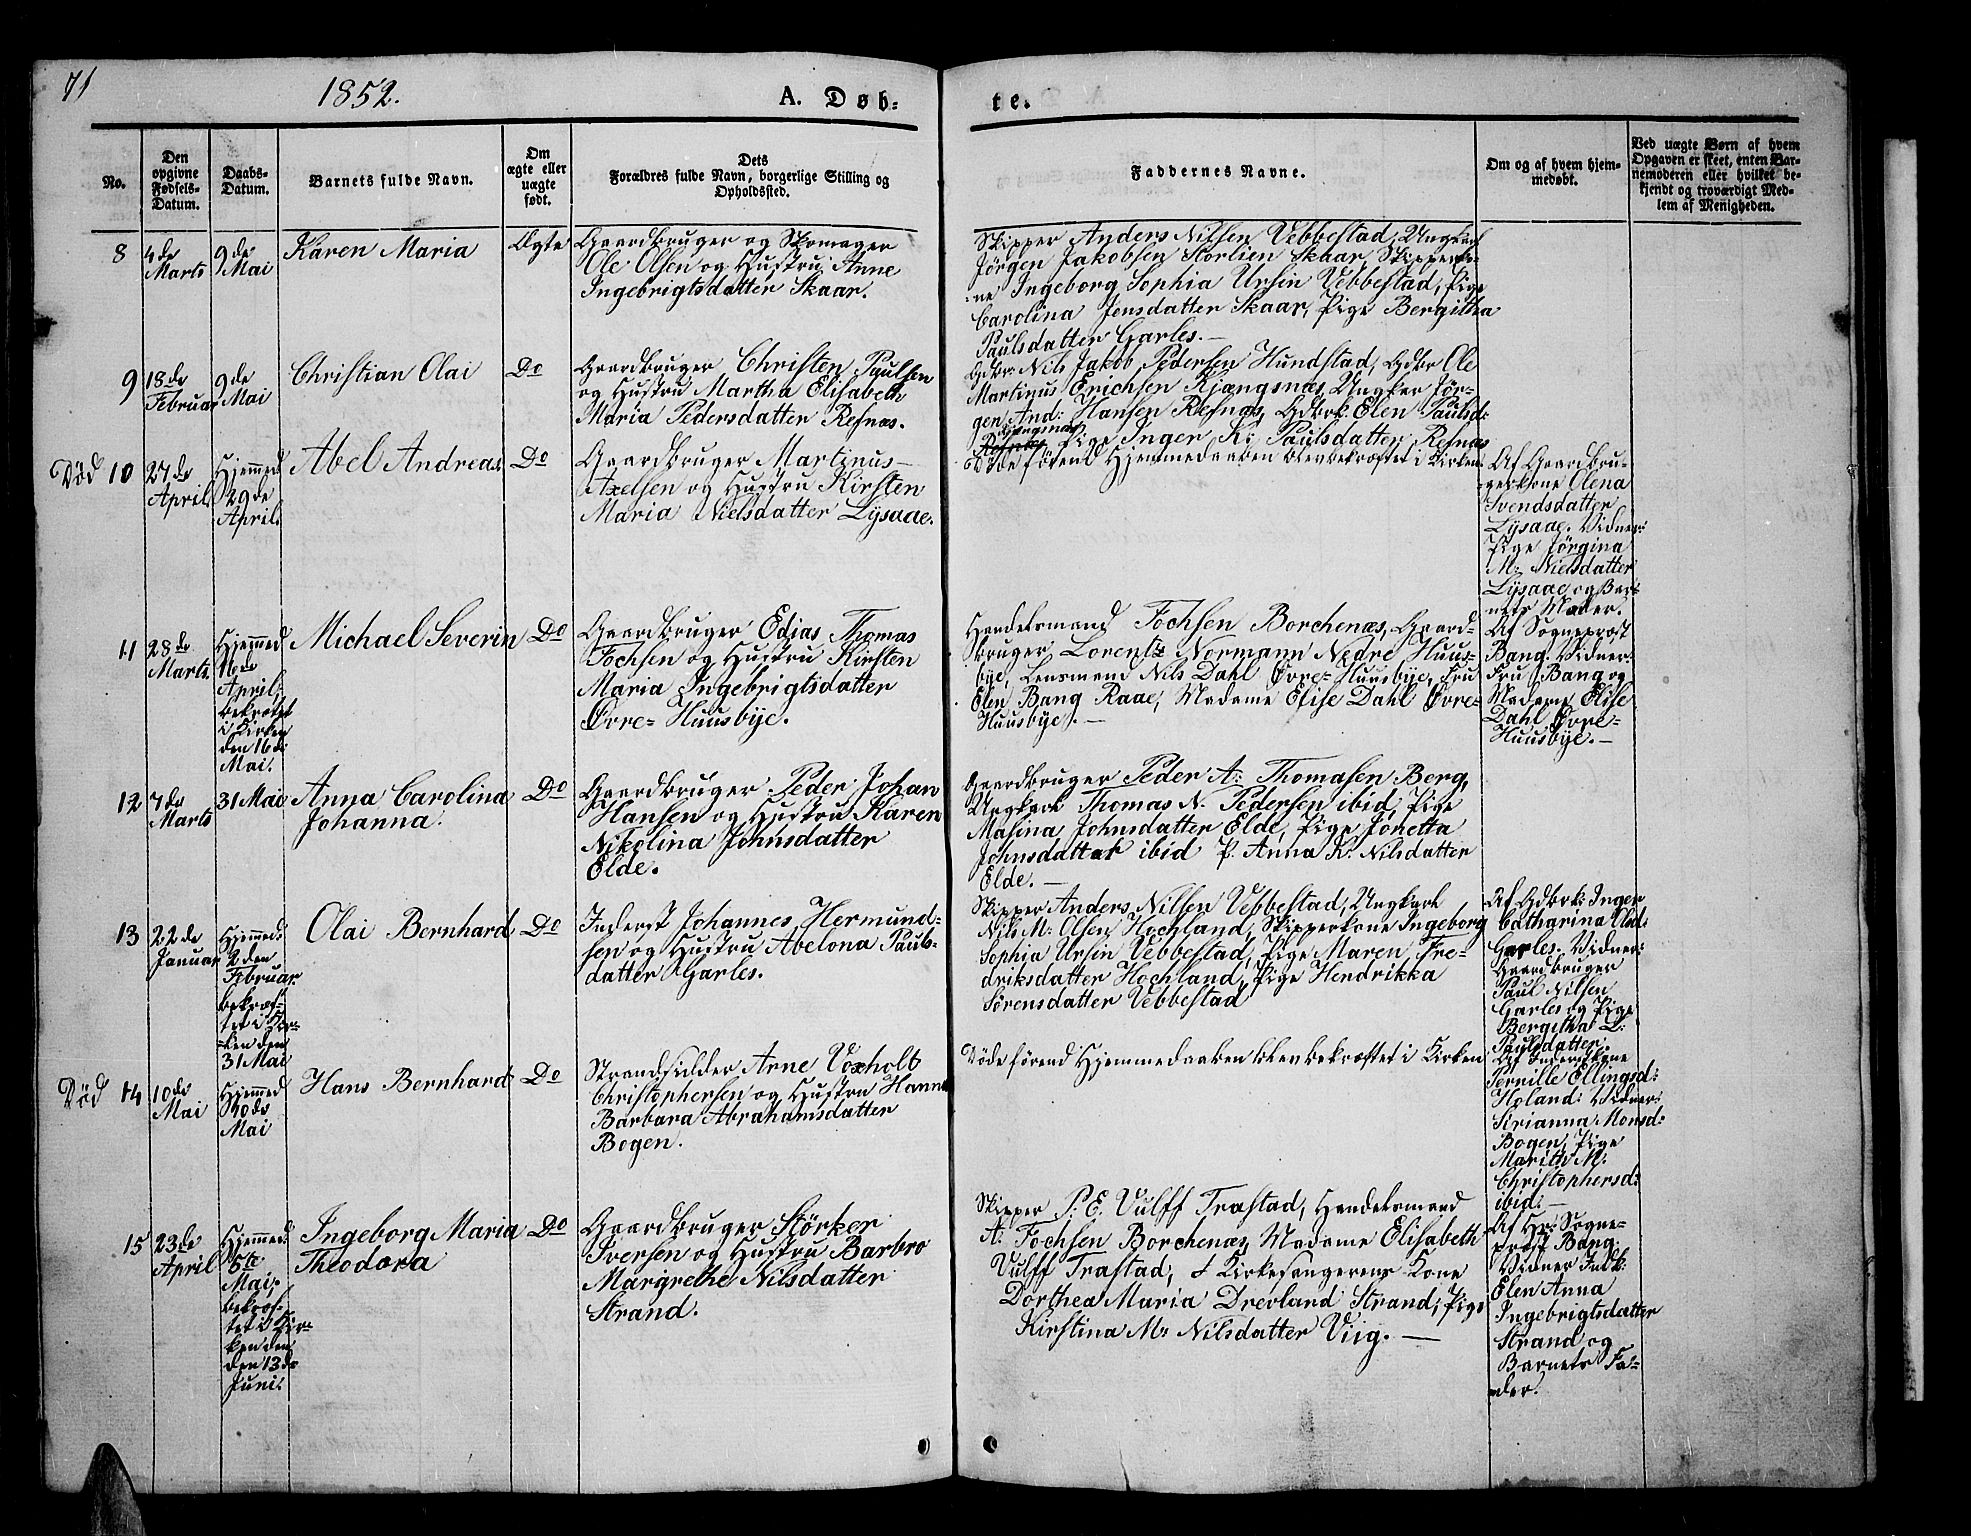 71
1852.
A. Døb-
te.
No.
Den
opgivne
Fødsels-
Datum.
Daabs-
Datum.
Barnets fulde Navn.
Om
ægte eller
uægte
født.
Dets
Forældres fulde Navn, borgerlige Stilling og
Opholdssted.
Faddernes Navne.
Om og af hvem hjem-
medøbt.
Ved uægte Børn af hvem
Opgaven er skeet, enten Bar-
nemoderen eller hvilket be-
kjendt og troværdigt Med-
lem af Menigheden.
8
4de
Marts
9de
Mai
Karen Maria
Ægte
Gaardbruger og Skomager
Ole Olsen og Hustru Anne
Ingebrigtsdatter Skaar.
Skipper Anders Nilsen Vebbestad, Ungkarl
Jörgen Jakobsen Storlien Skaar, Skipperko-
ne Ingeborg Sophia Ursin Vebbestad, Pige
Carolina Jensdatter Skaar, Pige Bergitha
Paulsdatter Garles.-
9
18de
Februar
9de
Mai
Christian Olai
Do
Gaardbruger Christen Paulsen
og Hustru Martha Elisabeth
Maria Pedersdatter Refnæs.
Gdbr: Nils Jakob Pedersen Hundstad, Gdbr Ole
Martinus Erichsen Kjængsnæs, Ungkar Jör-
gen And: Hansen Refnæs, Gdbrk: Elen Paulsd:
Kjængsnæs
Refnæs, Pige Inger K: Paulsdatter Refnæs
Död 10
27de
April
Hjemmed
29de
April
Abel Andreas
Do
Gaardbruger Martinus
Axelsen og Hustru Kirsten
Maria Nielsdatter Lysaae.
Döde förend Hjemmedaaben blev bekræftet i Kirken
Af Gaardbru-
gerkone Olena
Svendsdatter
Lysaae. Vidner:
Pige Jörgina
M: Nielsdatter
Lysaae og Bar-
nets Moder.
11
28de
Marts
Hjemmed
16de
April,
bekræftet
i Kirken
den 16de
Mai.
Michael Severin
Do
Gaardbruger Edias Thomas
Fochsen og Hustru Kirsten
Maria Ingebrigtsdatter
Övre-Huusbye.
Handelsmand Fochsen Borchenæs, Gaard-
bruger Lorents Normann Nedre Huus-
bye, Lensmand Nils Dahl Övre-Huusbye, Fru
Elen Bang Raae, Madame Elise Dahl Övre-
Huusbye.-
Af Sogneprost
Bang. Vidner:
Fru Bang og
Madame Elise
Dahl Övre-
Huusbye.-
12
7de
Marts
31 Mai
Anna Carolina
Johanna.
Do
Gaardbruger Peder Johan
Hansen og Hustru Karen
Nikolina Johnsdatter
Elde.
Gaardbruger Peder A: Thomasen Berg,
Ungkarl Thomas N. Pedersen ibid, Pige
Masina Johnsdatter Elde, Pige Jonetta
Johnsdatter ibid P. Anna K. Nilsdatter
Elde.-
13
22de
Januar
Hjemmed:
2den
Februar
bekræf-
tet i Kir-
ken den
31 Mai
Olai Bernhard
Do
Inderst Johannes Hermund-
sen og Hustru Abelona Pauls-
datter Garles.
Skipper Anders Nilsen Vebbestad, Ungkarl
Nils M: Olsen Hochland, Skipperkone Ingeborg
Sophia Ursin Vebbestad, Pige Maren Fre-
driksdatter Hochland, Pige Hendrikka
Sörensdatter Vebbestad
Af Gdbrk: Inger
Catharina Olsd:
Garles. Vidner:
Gaardbruger
Paul Nilsen
Garles og Pige
Bergitha L:
Paulsdatter.
Död 14
10de
Mai
Hjemmed
30de
Mai
Hans Bernhard
Do
Strandsidder Arne Voxholt
Christophersen og Hustru Hanna
Barbara Abrahamsdatter
Bogen.
Döde förend Hjemmedaaben blev bekræftet i Kirken
Af Inderstkone
Pernille Ellingsd:
Holand: Vidner:
Kirianna Monsd:
Bogen, Pige
Marith M:
Christophersd:
ibid.-
15
23de
April
Hjemmed:
5te
Mai,
bekræf-
tet i Kir-
ken den
den 13de
Juni.
Ingeborg Maria
Theodora
Do
Gaardbruger Störker
Iversen og Hustru Barbro
Margrethe Nilsdatter
Strand.
Skipper P. E. Vulff Træstad, Handelsmand
A: Fochsen Borchenæs, Madame Elisabeth
Vulff Træstad, Kirkesangerens Kone
Dorthea Maria Drevland Strand, Pige
Kirstina M: Nilsdatter Viig.-
Af Hr. Sogne-
prost Bang.
Vidner Indk:
Elen Anna
Ingebrigtsdatter
Strand og
Barnets Fa-
der.